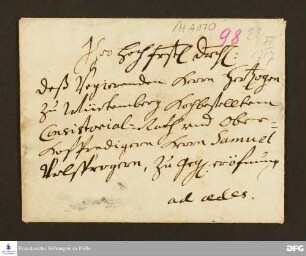 /H A 170
98
Ihro Hochfürstl Drchl:
deß Regierenden Herrn Hertzogen
Zu Würtemberg Hochbestelltem
Consistorial-Rath und Ober-
Hoffpredigern Herrn Samuel
Urlspergern, Zu eröffnung
ad aedes.
Franckesche Stiftungen zu Halle
DFG